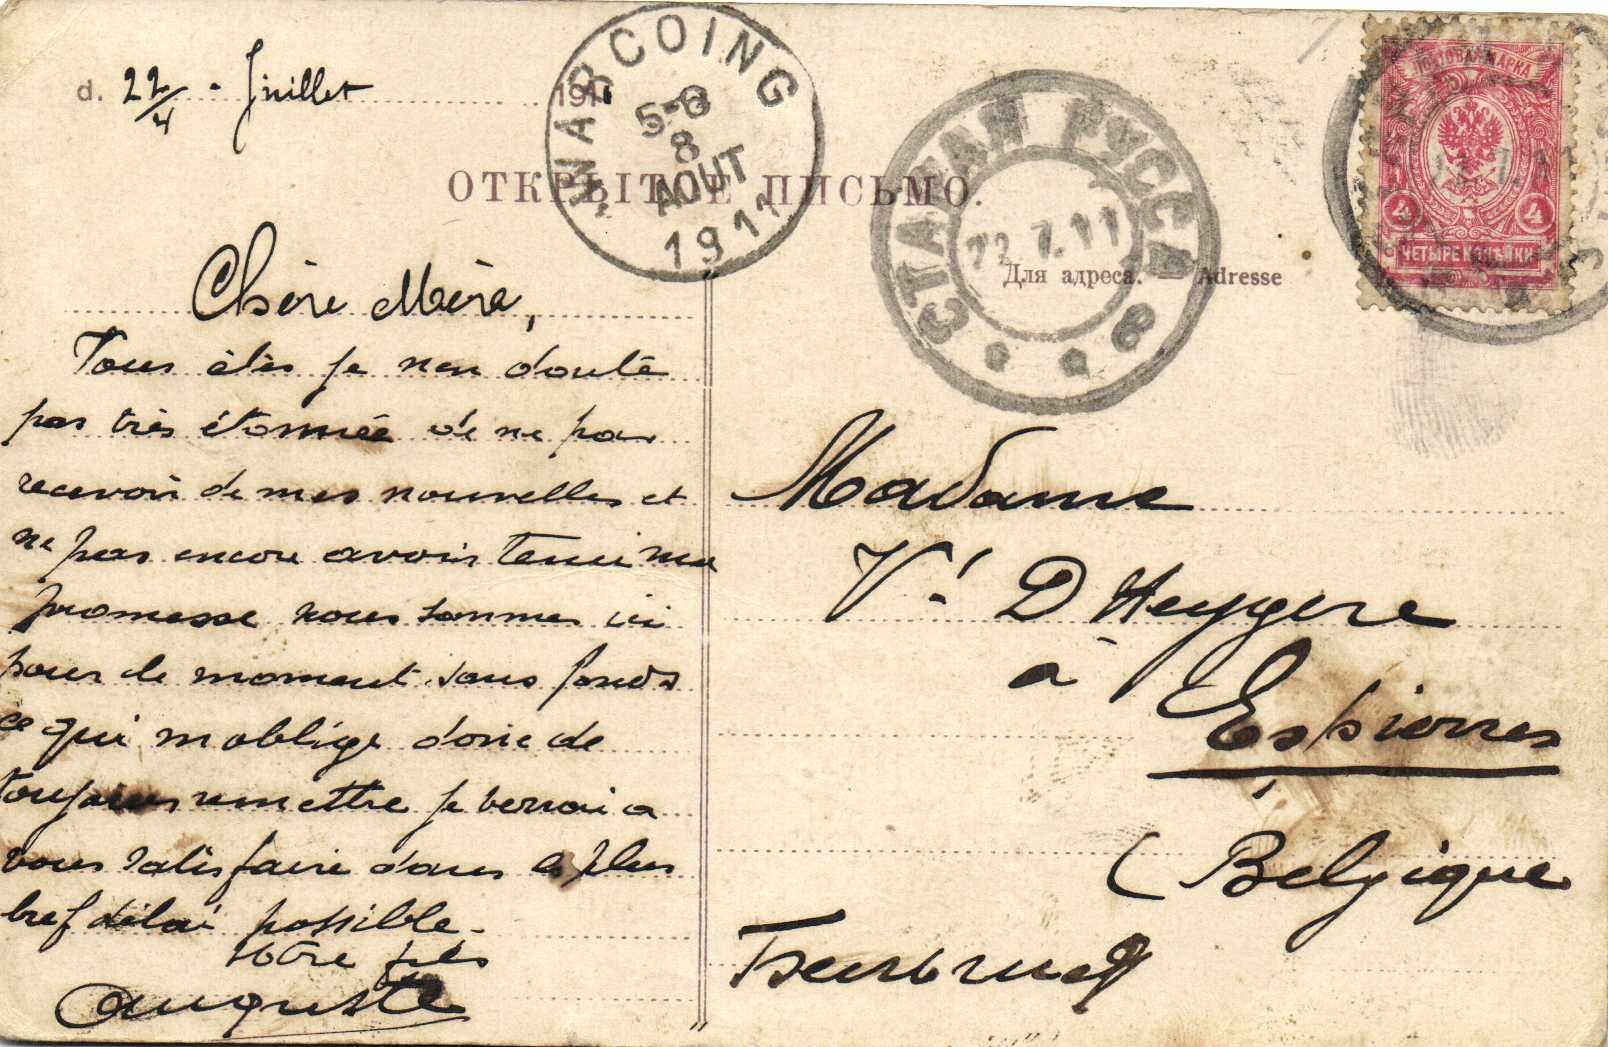 d. 22/4 - Juillet 191
WARCOING
5-6
8
AOUT
1911
ОТКРЫТОЕ ПИСЬМО.
СТАРАЯ РУССА
22.7.11
8
Для адреса. — Adresse
ПОЧТОВАЯ МАРКА
4 4
ЧЕТЫРЕ КОПѢЙКИ
Chère Mère,
Vous êtes je n'en doute
pas très étonnée de ne pas
recevoir de mes nouvelles et
ne pas encore avoir tenu ma
promesse nous sommes ici
pour le moment sans fonds
ce qui m'oblige donc de
toujours remettre je verrai a
vous satisfaire dans le plus
bref délai possible.
Votre fils
Auguste
Madame
Ve D'Heygere
à
Espierres
(Belgique